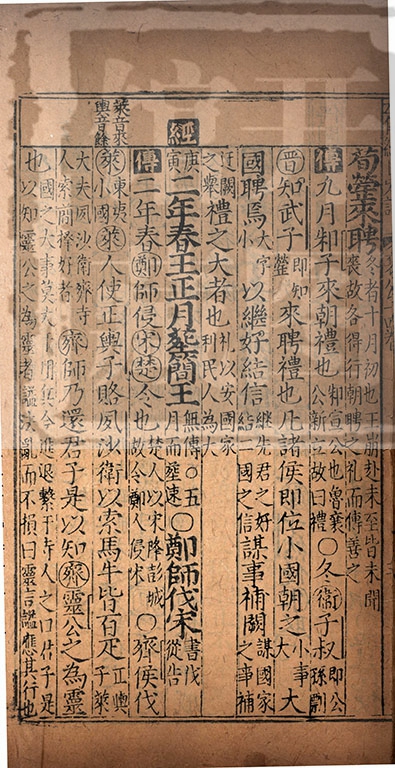 荀罃來聘冬者十月初也王崩赴未至皆未聞喪故各得行朝聘之礼而傳善之
傳九月邾子來朝禮也邾宣公也魯襄公新立故曰禮○冬衞子叔即公孫剽
晋知武子即知罃來聘禮也凡諸侯即位小國朝之小事大大
國聘焉大字小以繼好結信継先君之好結二國之信謀事補闕謀國家之事補
过闕禮之大者也礼以安國家利民人為大
經庚寅二年春王正月葬簡王無傳○五月而葬速○鄭師伐宋書伐從告
傳二年春鄭師侵宋楚令也楚人以宋降彭城故令鄭人侵宋○齊侯伐
萊音來輿音餘
萊東夷小國萊人使正輿子賂夙沙衛以索馬牛皆百疋正輿子萊
大夫夙沙衛齊寺人索簡擇好者齊師乃還君子是以知齊靈公之為靈
也國之大事莫大于用兵今進退繫于寺人之口君子是以知靈公之為靈者謚法亂而不損曰靈言謚應其行也